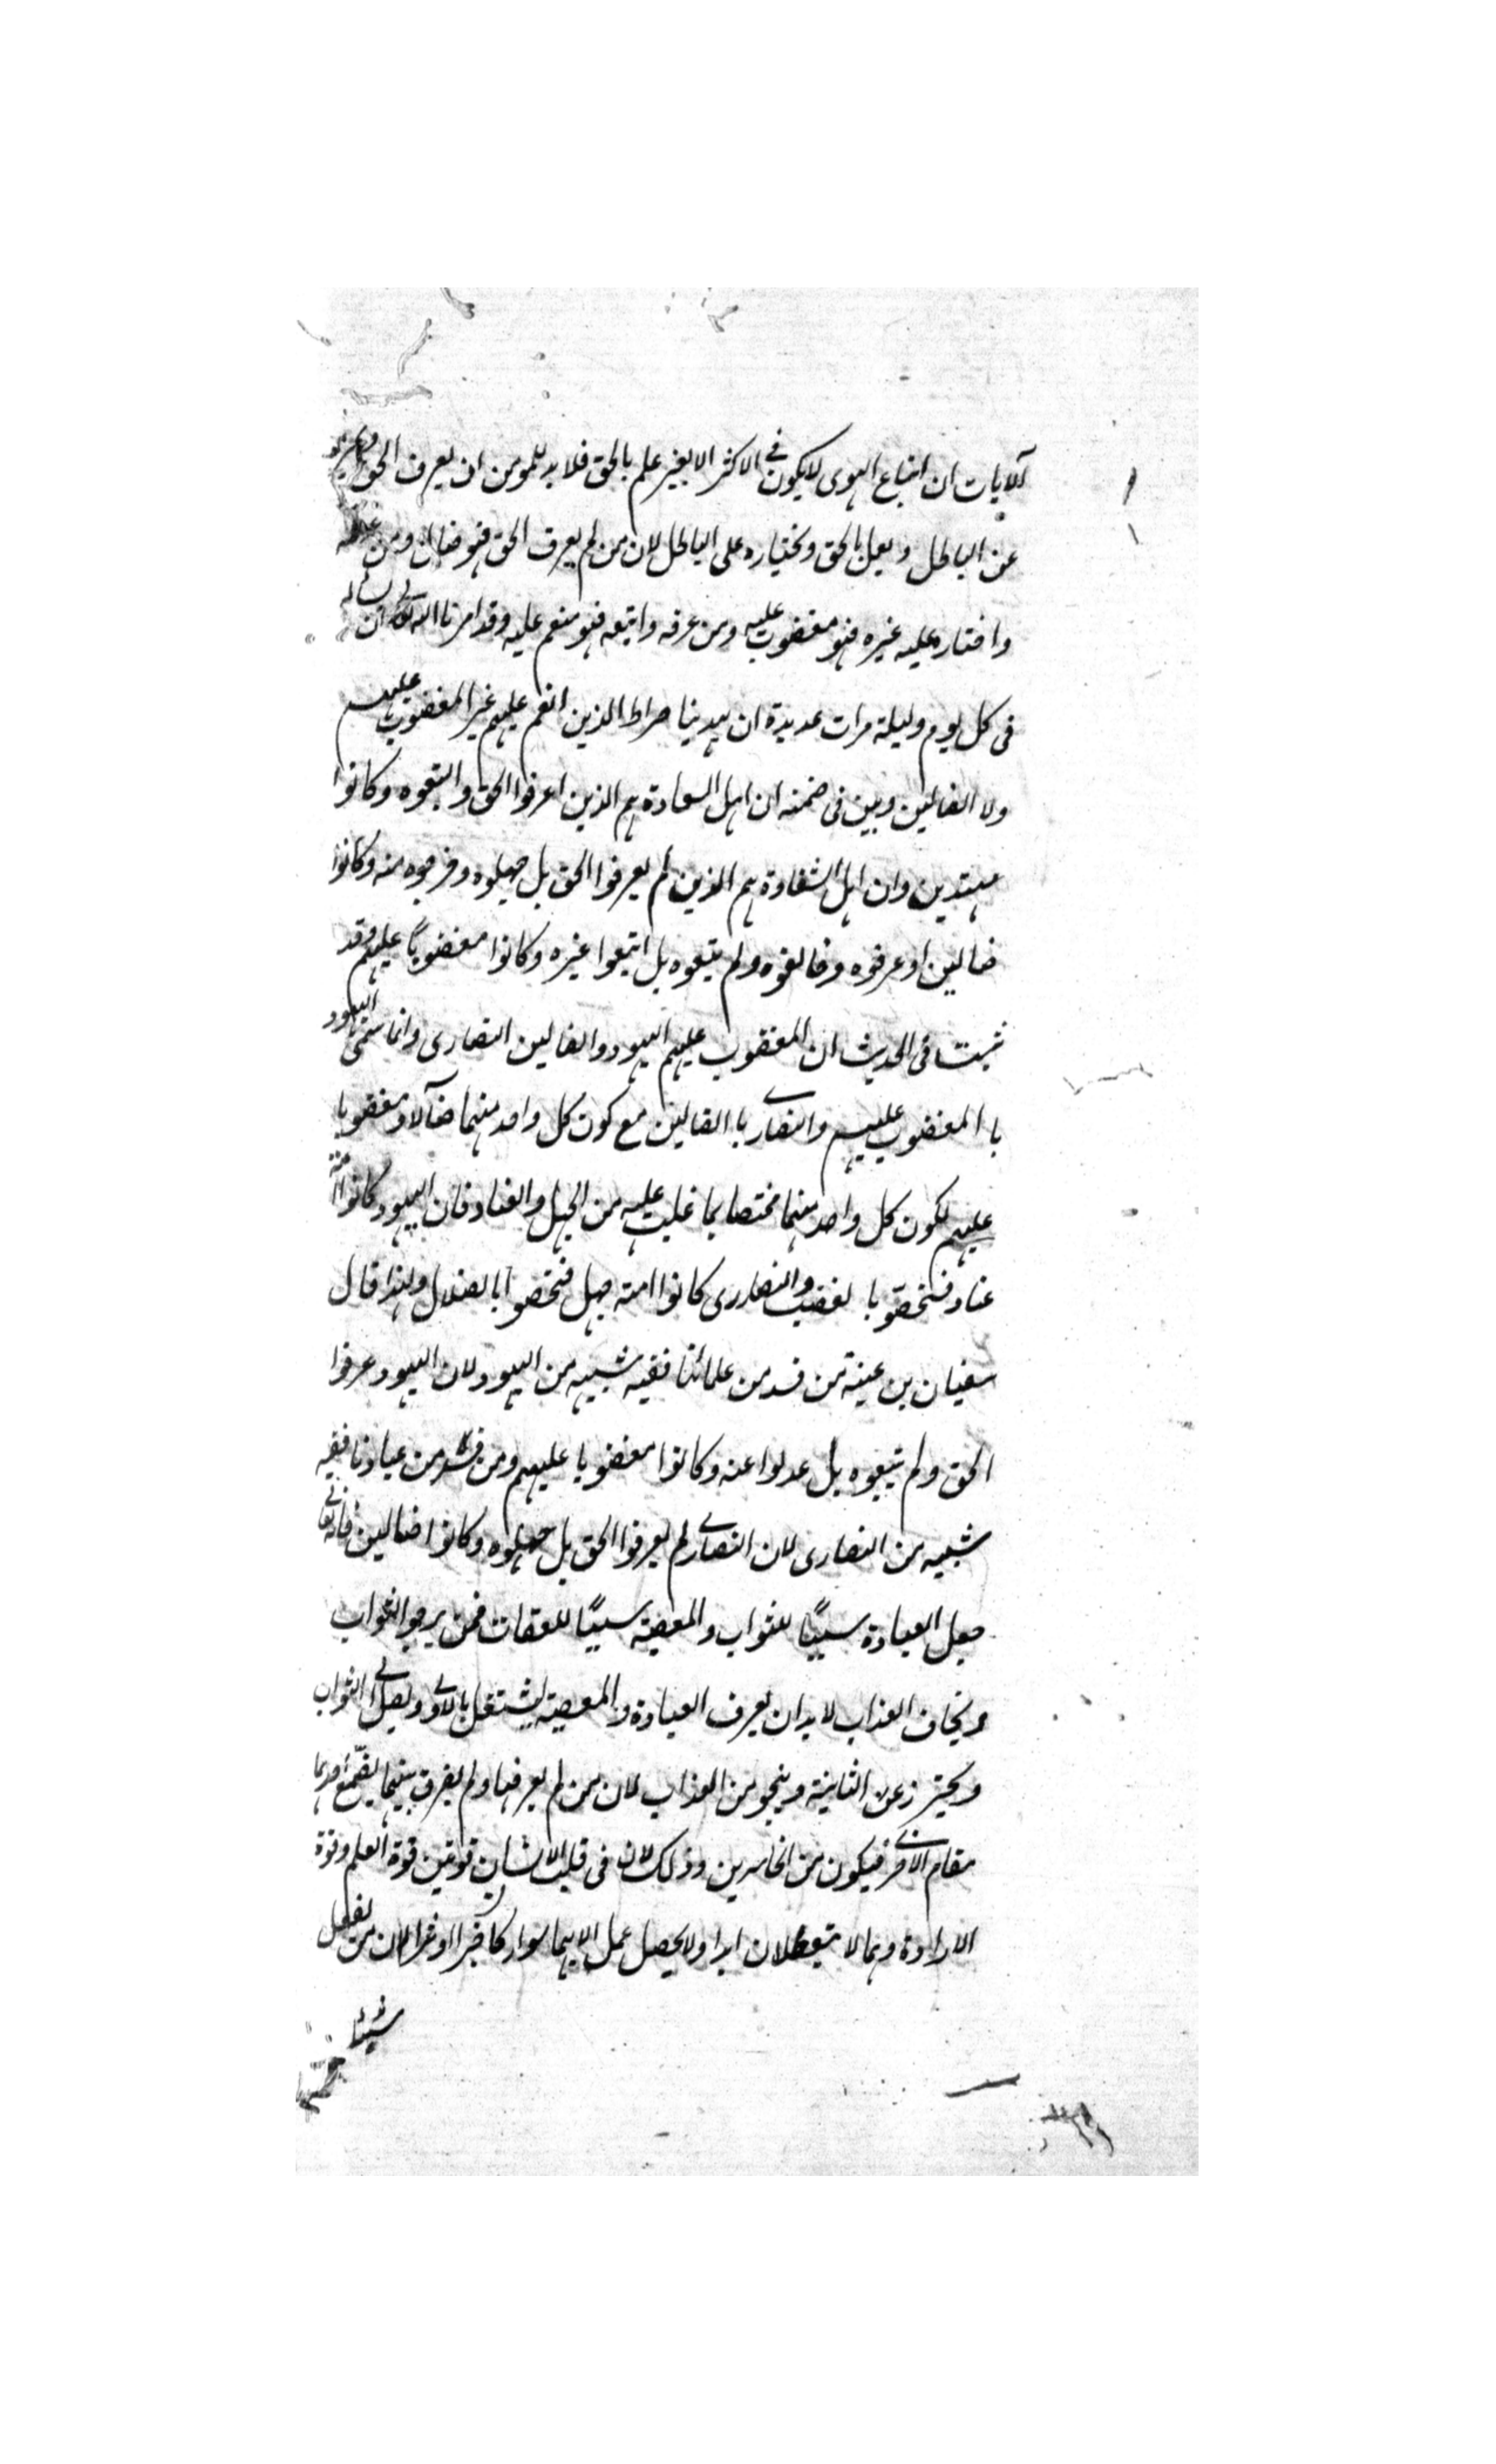 آلايات ان اتباع الهوى لا يكون في الاكثر الا بغير علم بالحق فلا بد للمومن ان يعرف الحق
عن الباطل ويعمل بالحق ويختاره على الباطل لان من لم يعرف الحق فهو ضال ومن
واختار عليه غيره فهو مغضوب عليه ومن عرفه واتبعه فهو منعم عليه وقد امرنا الله ان نسأله
فى كل يوم وليلة مرات عديدة ان يهدينا صراط الذين انعم عليهم غير المغضوب عليهم
ولا الضالين وبين فى ضمنه ان اهل السعادة هم الذين اعرفوا الحق واتبعوه وكانوا
مهتدين وان اهل الشقاوة هم الذين لم يعرفوا الحق بل جهلوه وخرجوه منه وكانوا
ضالين او عرفوه وخالفوه ولم يتبعوه بل اتبعوا غيره وكانوا مغضوبًا عليهم وقد
ثبت فى الحديث ان المغضوب عليهم اليهود والضالين النصارى وانما سمى اليهود
با المغضوب عليهم والنصارى با الضالين مع كون كل واحد منهما ضآلا ومغضوبا
عليهم لكون كل واحد منهما مختصا بما غلبت عليه من الجهل والعناد فان اليهود كانوا امة
عناد فتخصوا با لغضب والنصاررى كانوا امة جهل فتخصوا بالضلال ولهذا قال
سفيان بن عينة من فسد من علمائنا ففيه شبيه من اليهود لان اليهود عرفوا
الحق ولم يتبعوه بل عدلوا عنه وكانوا مغضوبا عليهم ومن فسد من عبادنا ففيه
شبيه من النصارى لان النصارى لم يعرفوا الحق بل جهلوه وكانوا ضالين فانه تعالى
جعل العبادة سببًا للثواب والمعصية سببًا للعقات فمن يرجو الثواب
ويخاف العذاب لا بد ان يعرف العبادة والمعصية ليشتغل بالاولى ويصل الى الثواب
ويحترز عن الثانية وينجو من العذاب لان من لم يعرفها ولم يفرق بينهما يقع احدهما
مقام الاخرى فيكون من الخاسرين وذلك لان فى قلب الانسان قوتين قوة العلم وقوة
الارادة وهما لا يتعطلان ابدا ولا يحصل عمل الا بهما سواء كان خيرا او شرا لان من يفعل
شيئا